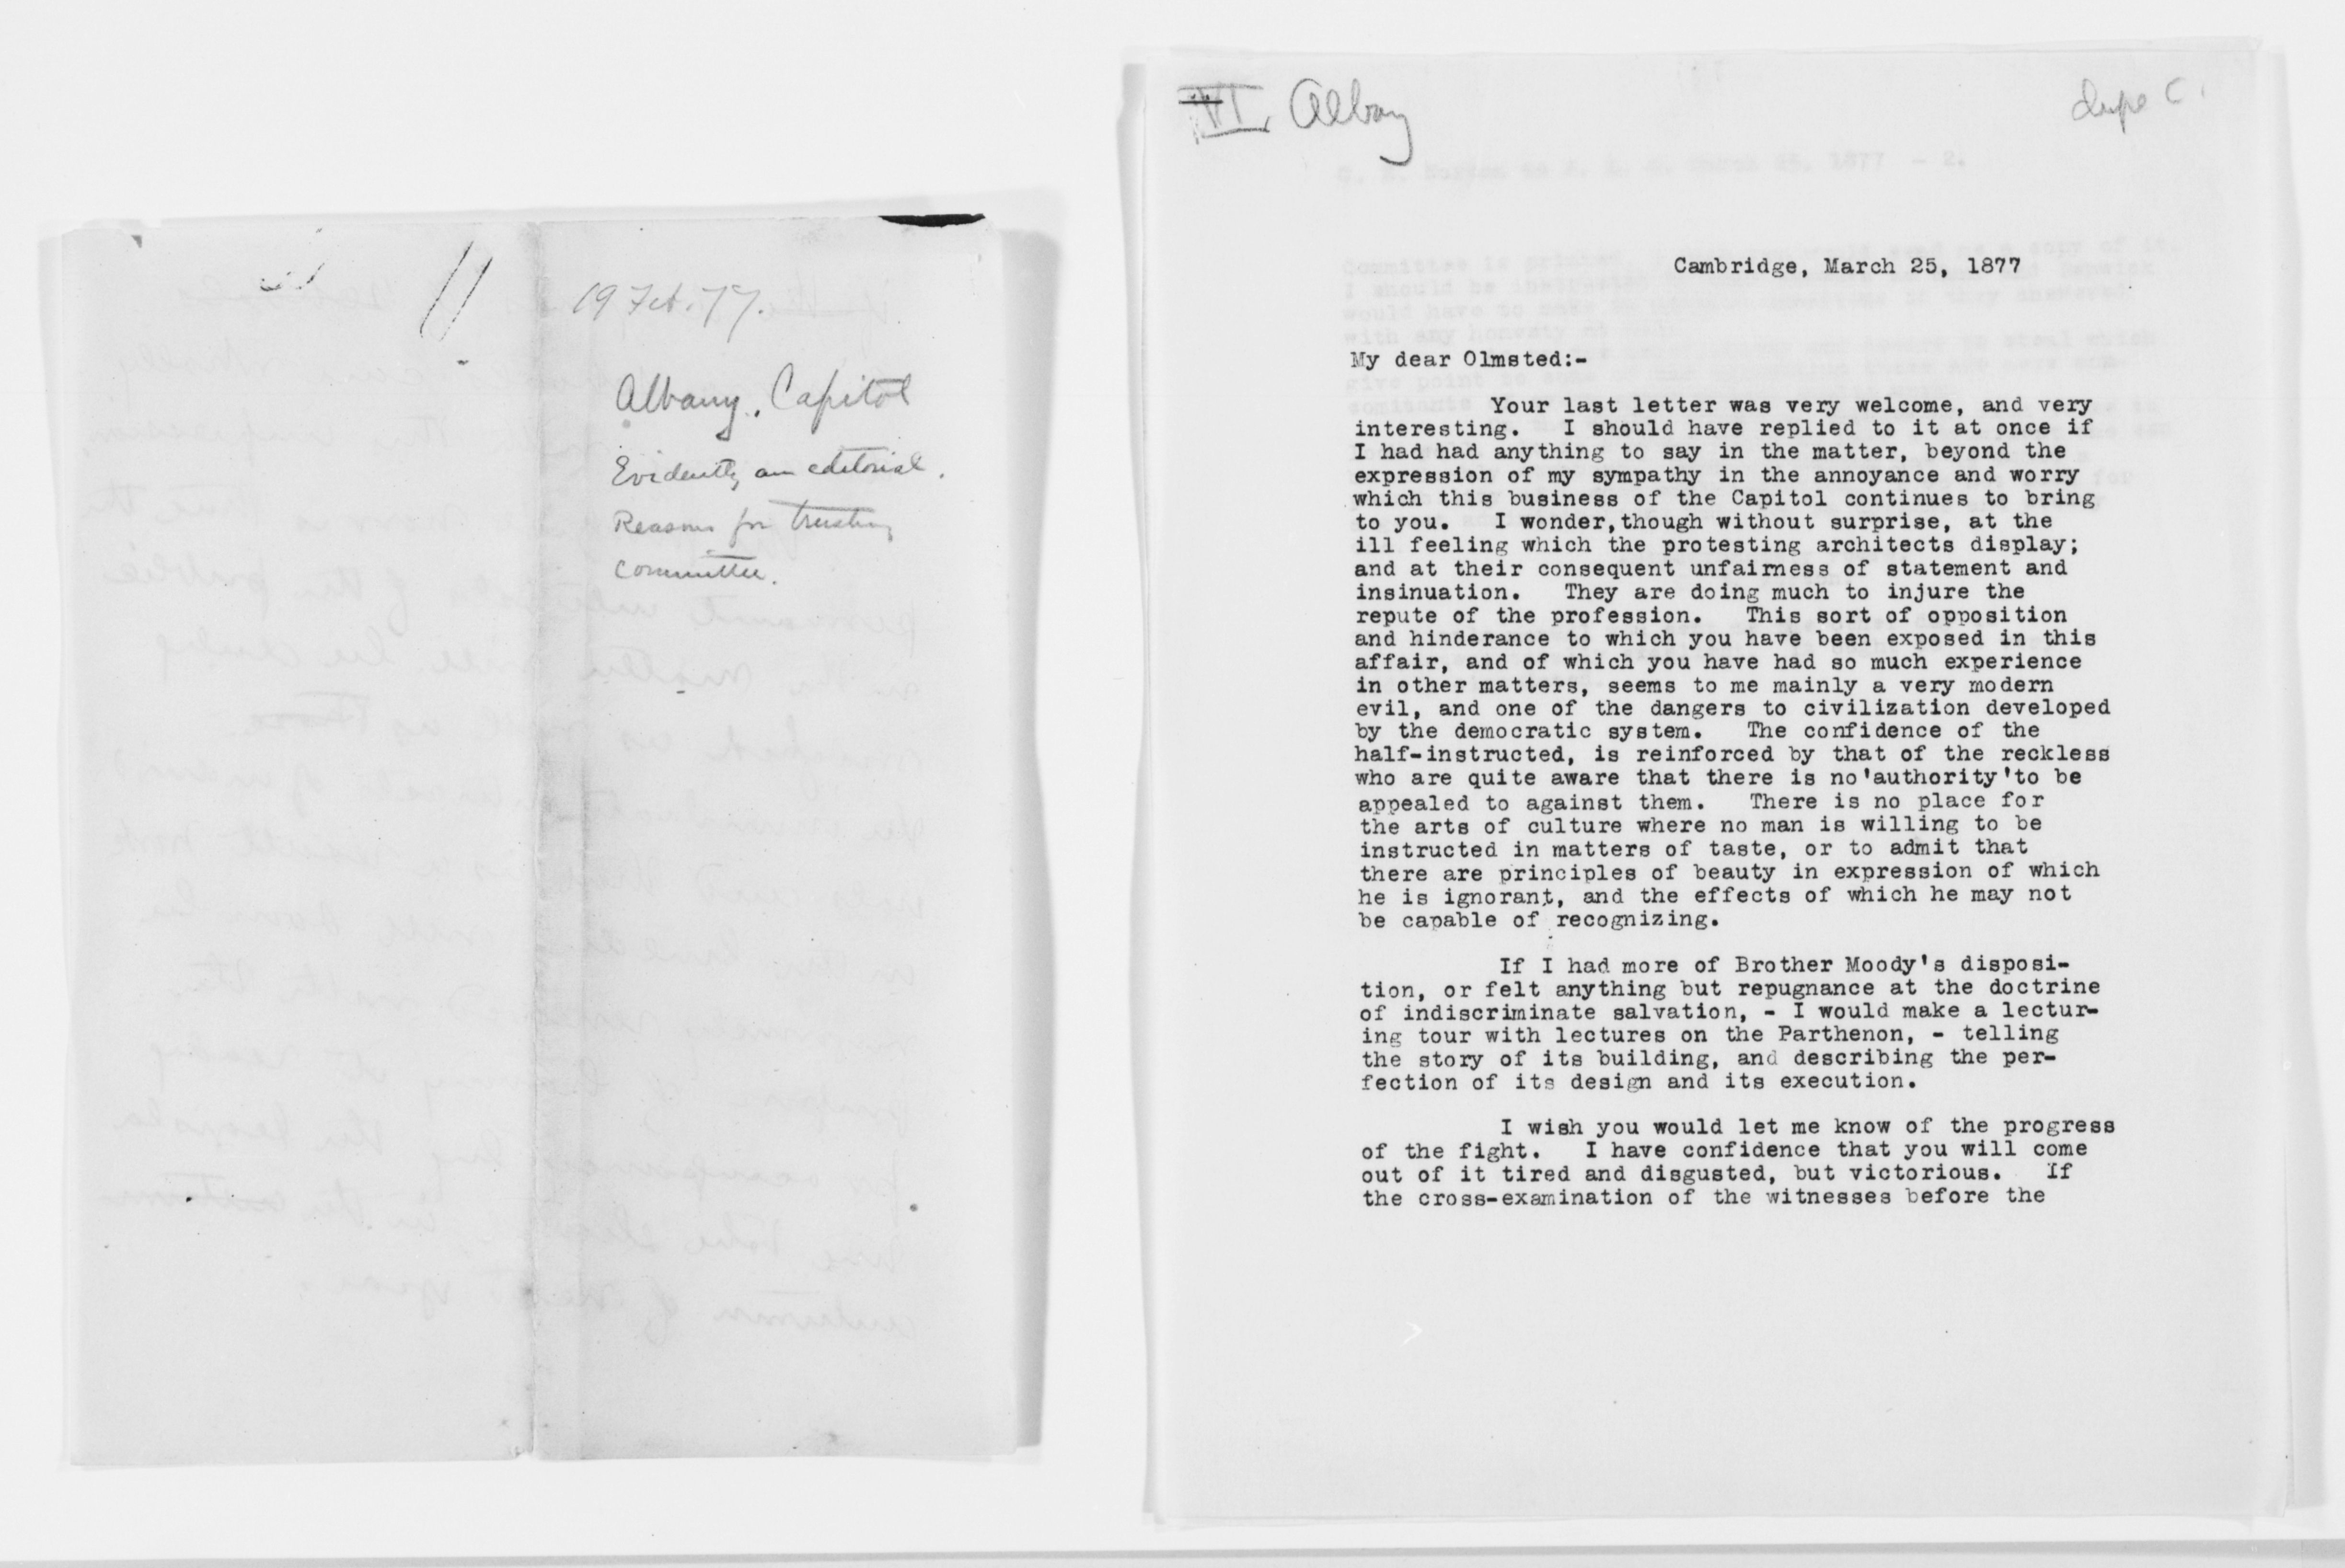 19 Feb. 77.
Albany. Capitol
Evidently an editorial.
Reasons for trusting
committee.
VI. Albany
dupe C.
Cambridge, March 25, 1877
My dear Olmsted:-
Your last letter was very welcome, and very
interesting. I should have replied to it at once if
I had had anything to say in the matter, beyond the
expression of my sympathy in the annoyance and worry
which this business of the Capitol continues to bring
to you. I wonder,though without surprise, at the
ill feeling which the protesting architects display;
and at their consequent unfairness of statement and
insinuation. They are doing much to injure the
repute of the profession. This sort of opposition
and hinderance to which you have been exposed in this
affair, and of which you have had so much experience
in other matters, seems to me mainly a very modern
evil, and one of the dangers to civilization developed
by the democratic system. The confidence of the
half-instructed, is reinforced by that of the reckless
who are quite aware that there is no'authority'to be
appealed to against them. There is no place for
the arts of culture where no man is willing to be
instructed in matters of taste, or to admit that
there are principles of beauty in expression of which
he is ignorant, and the effects of which he may not
be capable of recognizing.
If I had more of Brother Moody's disposi-
tion, or felt anything but repugnance at the doctrine
of indiscriminate salvation, - I would make a lectur-
ing tour with lectures on the Parthenon, - telling
the story of its building, and describing the per-
fection of its design and its execution.
I wish you would let me know of the progress
of the fight. I have confidence that you will come
out of it tired and disgusted, but victorious. If
the cross-examination of the witnesses before the